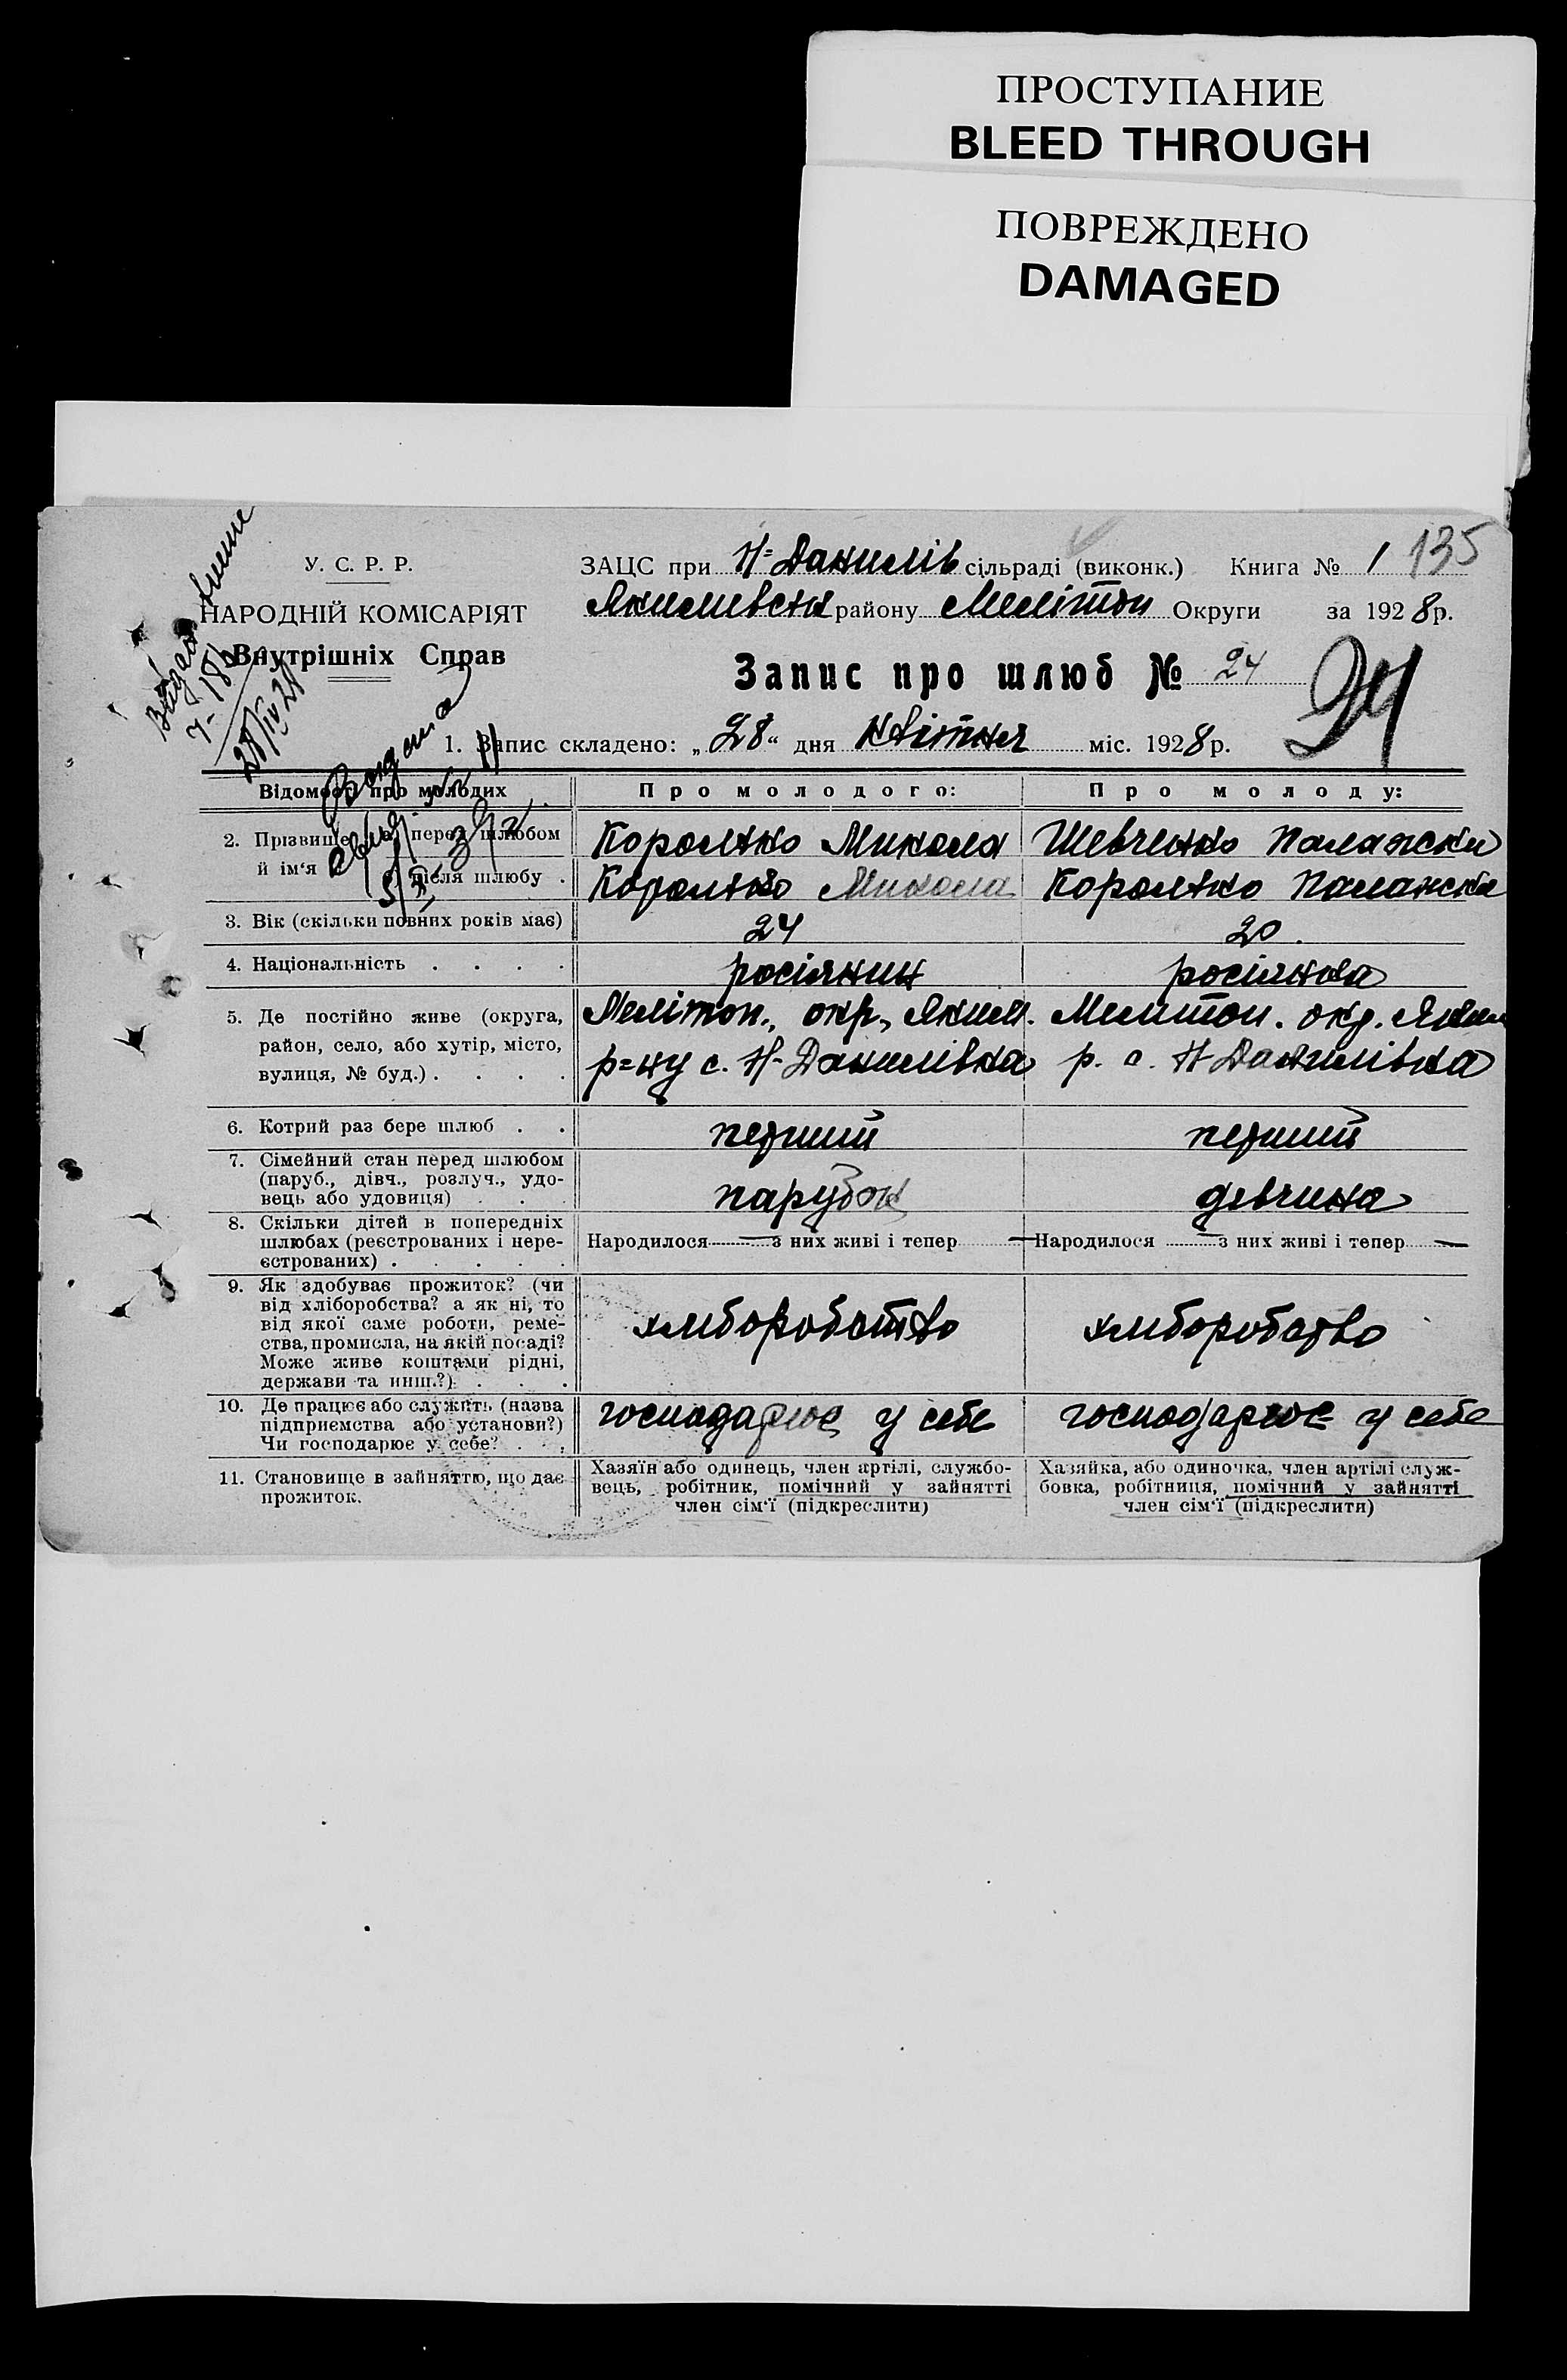 ПРОСТУПАНИЕ
BLEED THROUGH
ПОВРЕЖДЕНО
DAMAGED
У. С. Р. Р.
НАРОДНІЙ КОМІСАРІЯТ
Внутрішніх Справ
ЗАЦС при Н=Данилів сільраді (виконк.) Книга № 1 135
Якимівськ району Мелітоп Округи за 1928р.
Запис про шлюб № 24
24
28/IV 28
1. Запис складено: „28“ дня Квітня міс. 1928р.
Відомості про молодих Про молодого: Про молоду:
2. Прізвище й ім'я а) перед шлюбом Короленко Микола Шевченко Палажка
після шлюбу . Короленко Микола Короленко Палажка
3. Вік (скільки повних років має) 24 20.
4. Національність . . . . росіянин росіянка
5. Де постійно живе (округа, Мелітоп., окр., Яким. Мелитоп. окр. Яким
район, село, або хутір, місто, р=ну с. Н-Данилівка р. с. Н Данилівка
вулиця, № буд.) . . . .
6. Котрий раз бере шлюб . . перший перший
7. Сімейний стан перед шлюбом
(паруб., дівч., розлуч., удо-
вець або удовиця) . . . парубок девчина
8. Скільки дітей в попередніх
шлюбах (реєстрованих і нере- Народилося — з них живі і тепер — Народилося — з них живі і тепер —
єстрованих) . . . . .
9. Як здобуває прожиток? (чи
від хліборобства? а як ні, то
від якої саме роботи, реме- хлиборобство хлиборобство
ства, промисла, на якій посаді?
Може живе коштами рідні,
держави та инш.?) . . .
10. Де працює або служить (назва господарює у себе господарює у себе
підприємства або установи?)
Чи господарює у себе? . . .
11. Становище в зайняттю, що дає Хазяїн або одинець, член артілі, службо- Хазяйка, або одиночка, член артілі служ-
прожиток. вець, робітник, помічний у зайнятті бовка, робітниця, помічний у зайнятті
член сім'ї (підкреслити) член сім'ї (підкреслити)